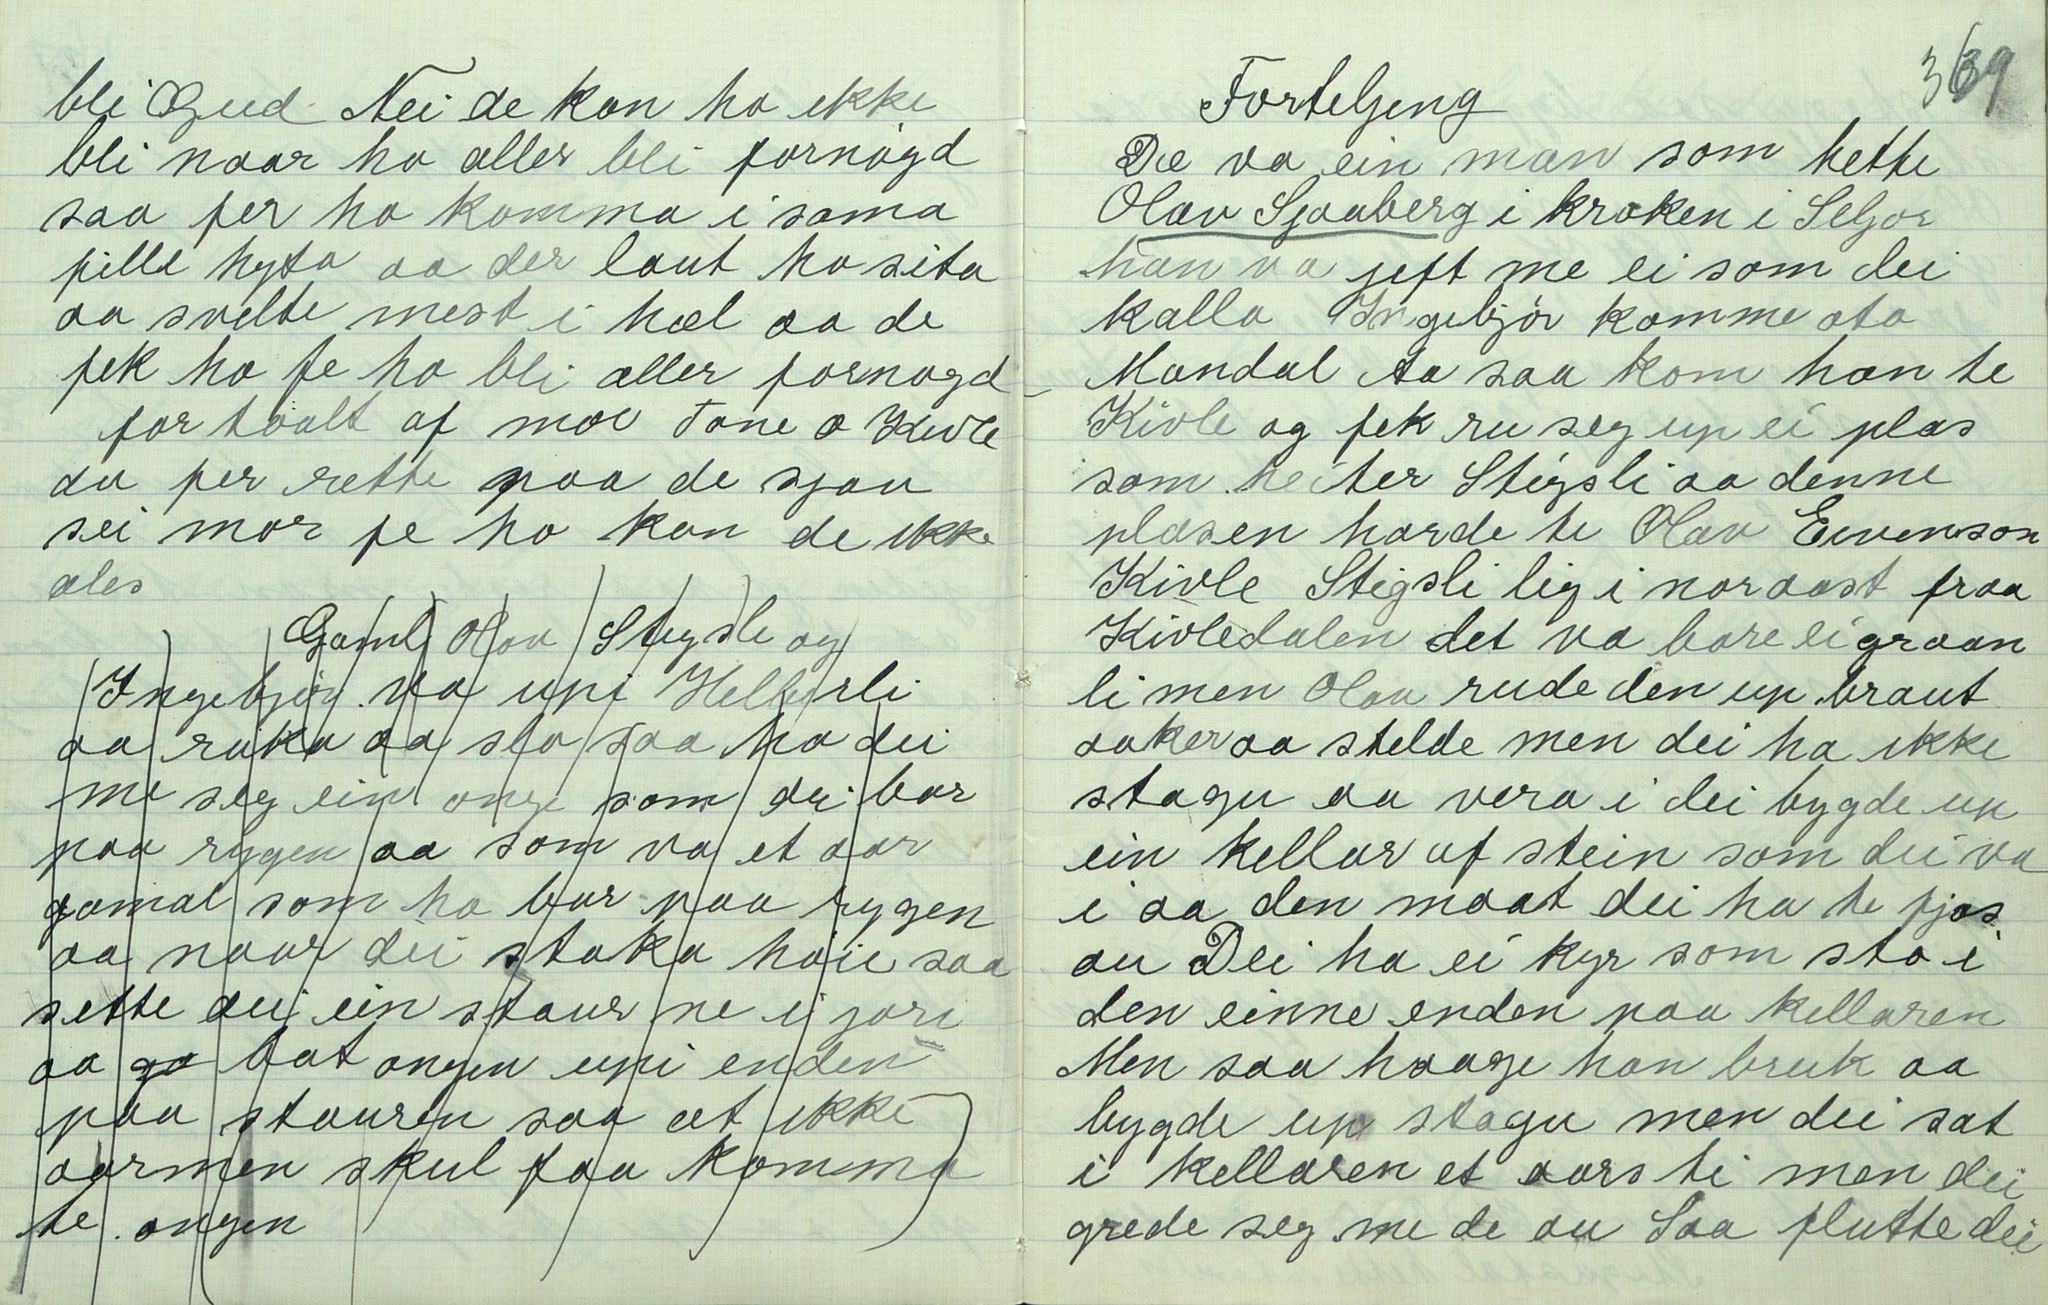 bli Gud Nei de kan ho ikke
bli naar ho aller bli fornögd
saa fer ho komma i sama
pille hyta aa der laut ho sita
aa svelte mest i hæl aa de
fek ho fe ho bli aller fornogd
for taalt af mor Tone O Kivle
du fer rette paa de sjau
sei mor fe ho kan de ikke
ales
Gaml Olav Stigsli og
Ingebjör va upi Helle rli
aa raka aa slo saa ha dei
me seg ein onge som dei bar
paa rygen aa som va et aar
gamal som ho bar paa rygen
aa naar dei staka höie saa
sette dei ein staur ne i jori
aa ga bat ongen upi enden
paa stauren saa at ikke
aarmen skul faa komma
te ongen
369
Forteljeng
De va ein man som hette
Olav Sjaaberg i kroken i Seljor
han va jeft me ei som dei
kalla Ingebjör komme ata
Mandal Aa saa kom han te
Kivle og fek ru seg up ei plas
som heiter Stigsli aa denne
plasen horde te Olav Eivenson
Kivle Stigsli lig i nor aast fraa
Kivledalen det va bare ei graan
li men Olav rude den up braut
aaker aa stelde men dei ha ikke
stagu aa vera i dei bygde up
ein kellar af stein som dei va
i aa den maat dei ha te fjos
au Dei ha ei kyr som sto i
den einne enden paa kellaren
Men saa haage han bruk aa
bygde up stagu men dei sat
i kellaren et aars ti men dei
grede seg me de au Saa flutte dei